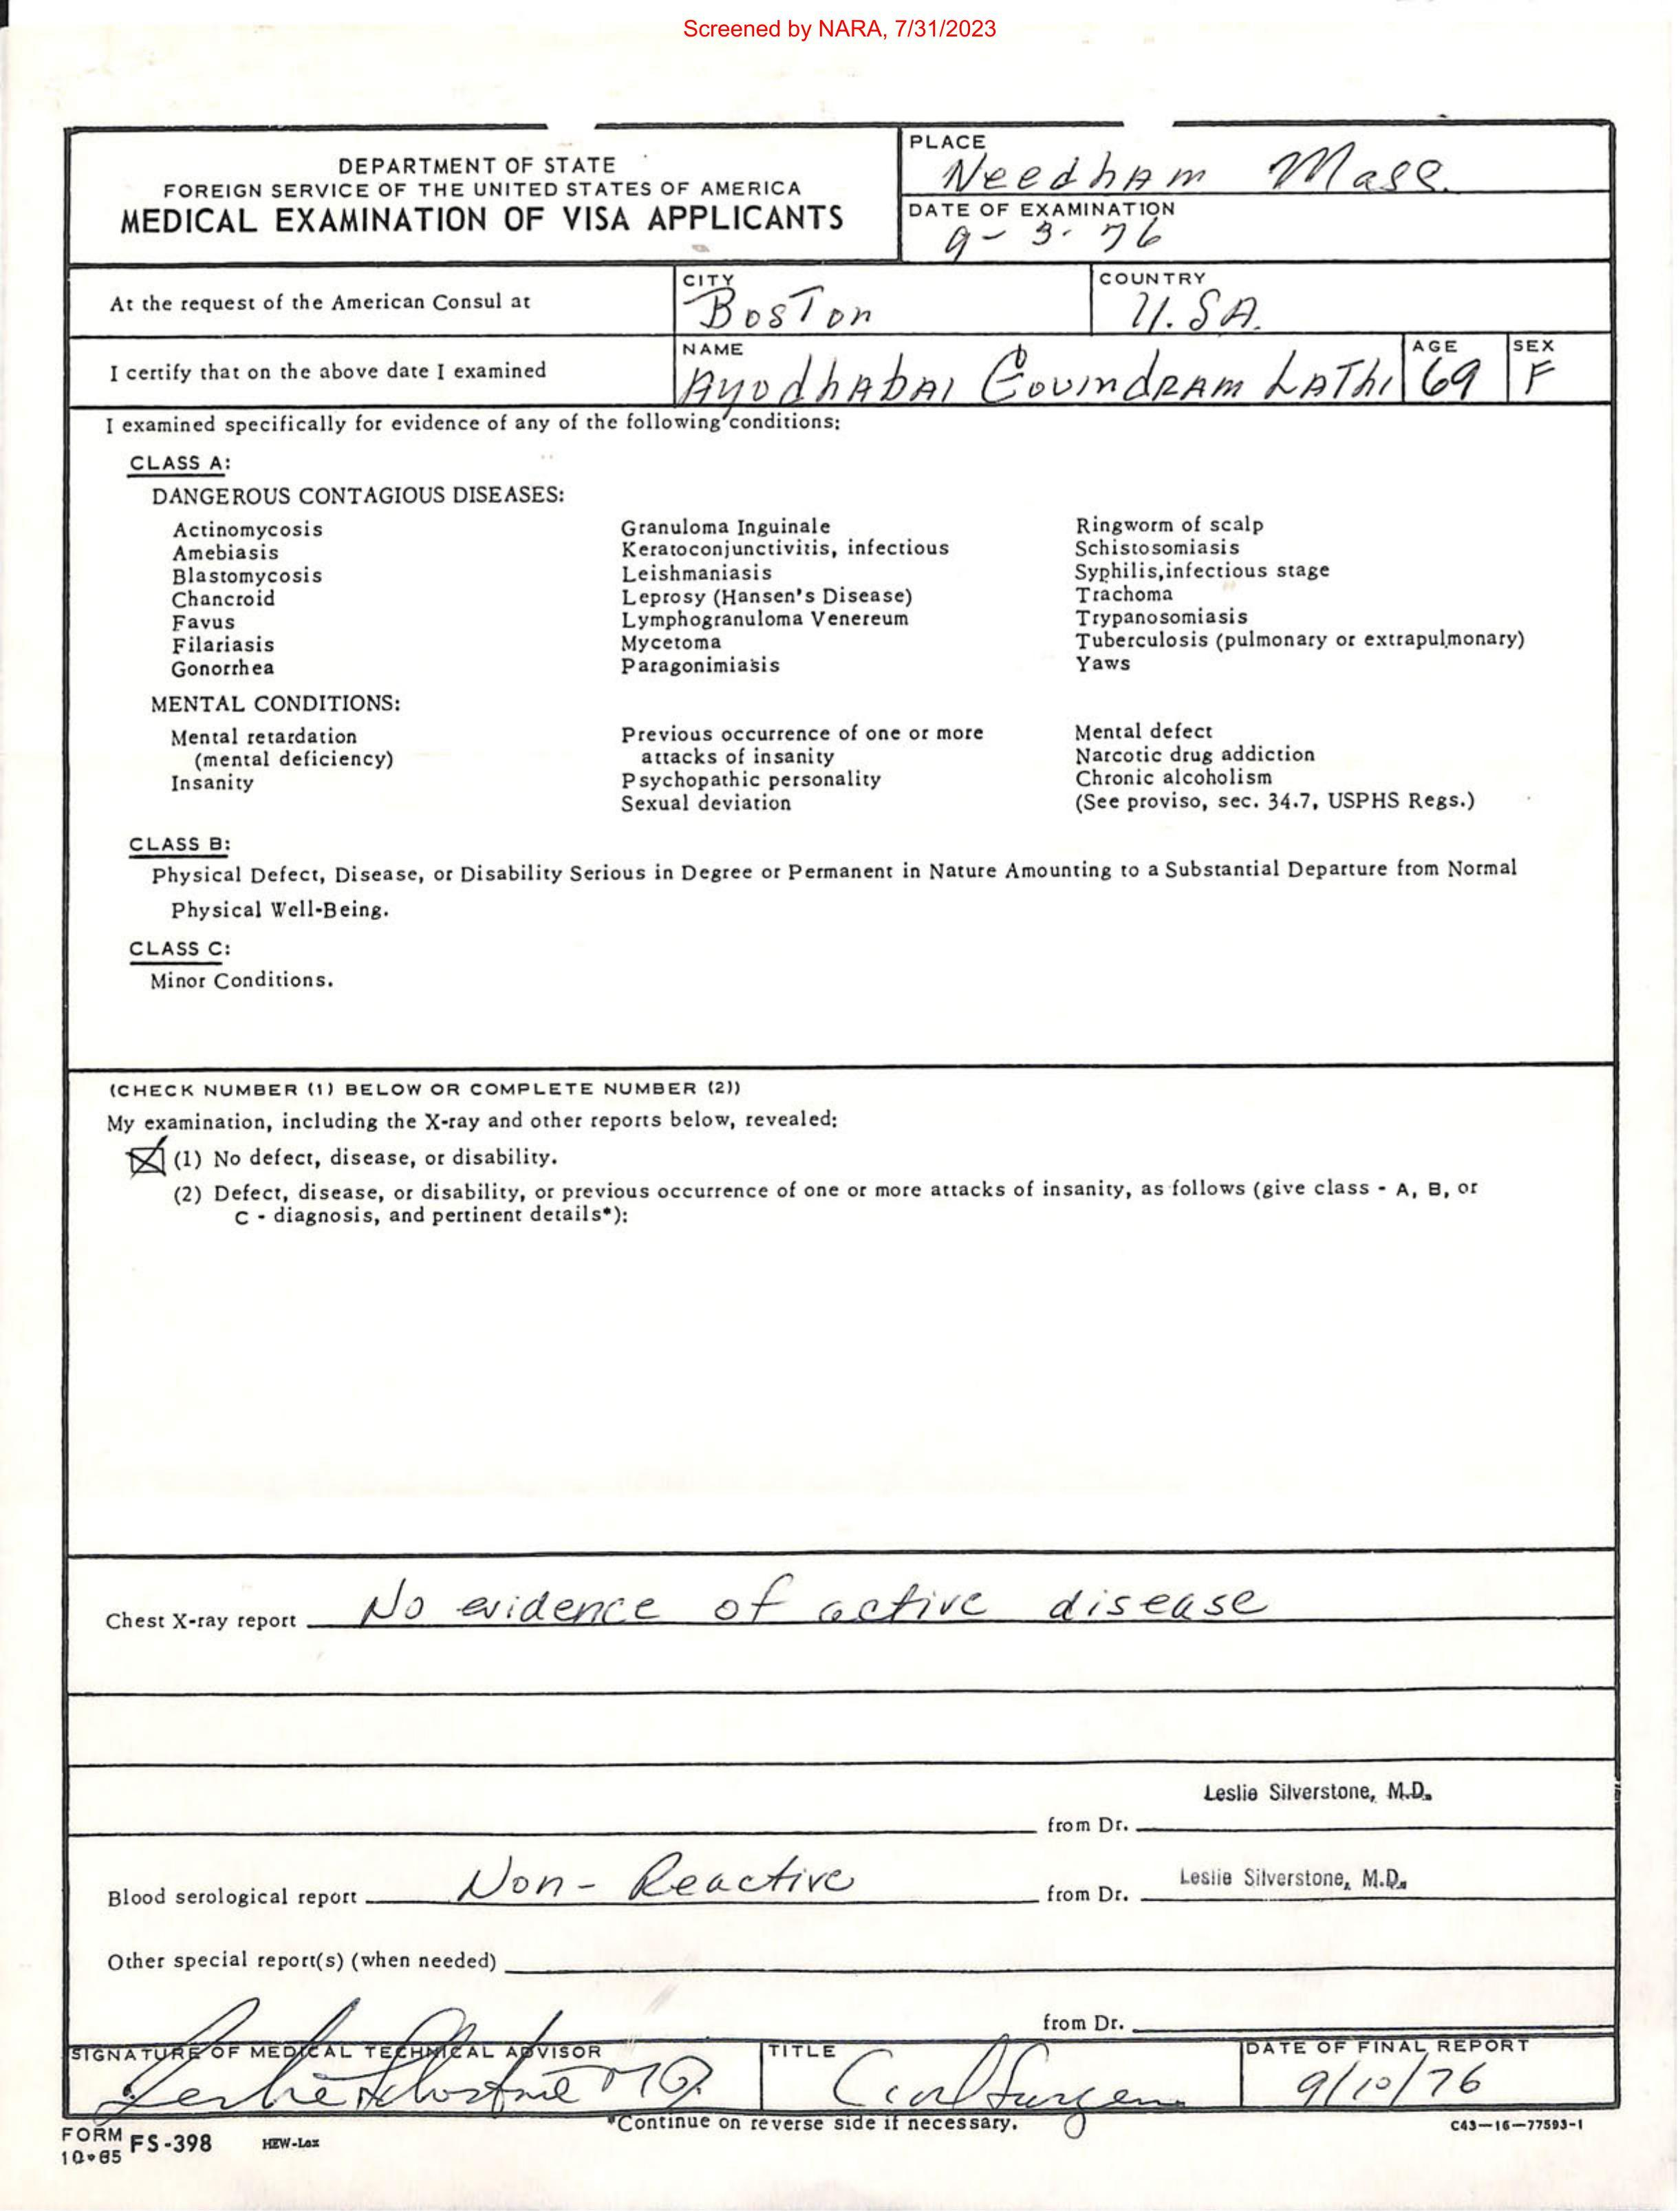 Screened by NARA, 7/31/2023
DEPARTMENT OF STATE
FOREIGN SERVICE OF THE UNITED STATES OF AMERICA
MEDICAL EXAMINATION OF VISA APPLICANTS
PLACE
Needham Mass.
DATE OF EXAMINATION
9-3-76
At the request of the American Consul at
CITY
Boston
COUNTRY
U.S.A.
I certify that on the above date I examined
NAME
Ayodhabai Govindram Lathi
AGE
69
SEX
F
I examined specifically for evidence of any of the following conditions:
CLASS A:
DANGEROUS CONTAGIOUS DISEASES:
Actinomycosis
Amebiasis
Blastomycosis
Chancroid
Favus
Filariasis
Gonorrhea
Granuloma Inguinale
Keratoconjunctivitis, infectious
Leishmaniasis
Leprosy (Hansen's Disease)
Lymphogranuloma Venereum
Mycetoma
Paragonimiasis
Ringworm of scalp
Schistosomiasis
Syphilis,infectious stage
Trachoma
Trypanosomiasis
Tuberculosis (pulmonary or extrapulmonary)
Yaws
MENTAL CONDITIONS:
Mental retardation
(mental deficiency)
Insanity
Previous occurrence of one or more
attacks of insanity
Psychopathic personality
Sexual deviation
Mental defect
Narcotic drug addiction
Chronic alcoholism
(See proviso, sec. 34.7, USPHS Regs.)
CLASS B:
Physical Defect, Disease, or Disability Serious in Degree or Permanent in Nature Amounting to a Substantial Departure from Normal
Physical Well-Being.
CLASS C:
Minor Conditions.
(CHECK NUMBER (1) BELOW OR COMPLETE NUMBER (2))
My examination, including the X-ray and other reports below, revealed:
(1) No defect, disease, or disability.
(2) Defect, disease, or disability, or previous occurrence of one or more attacks of insanity, as follows (give class - A, B, or
C - diagnosis, and pertinent details*):
Chest X-ray report No evidence of active disease
Leslie Silverstone, M.D.
from Dr.
Blood serological report Non-Reactive from Dr. Leslie Silverstone, M.D.
Other special report(s) (when needed)
from Dr.
SIGNATURE OF MEDICAL TECHNICAL ADVISOR
Leslie Silverstone MD
TITLE
Civil Surgeon
DATE OF FINAL REPORT
9/10/76
*Continue on reverse side if necessary.
FORM
10-65 FS-398
HEW-Lex
C43-16-77593-1